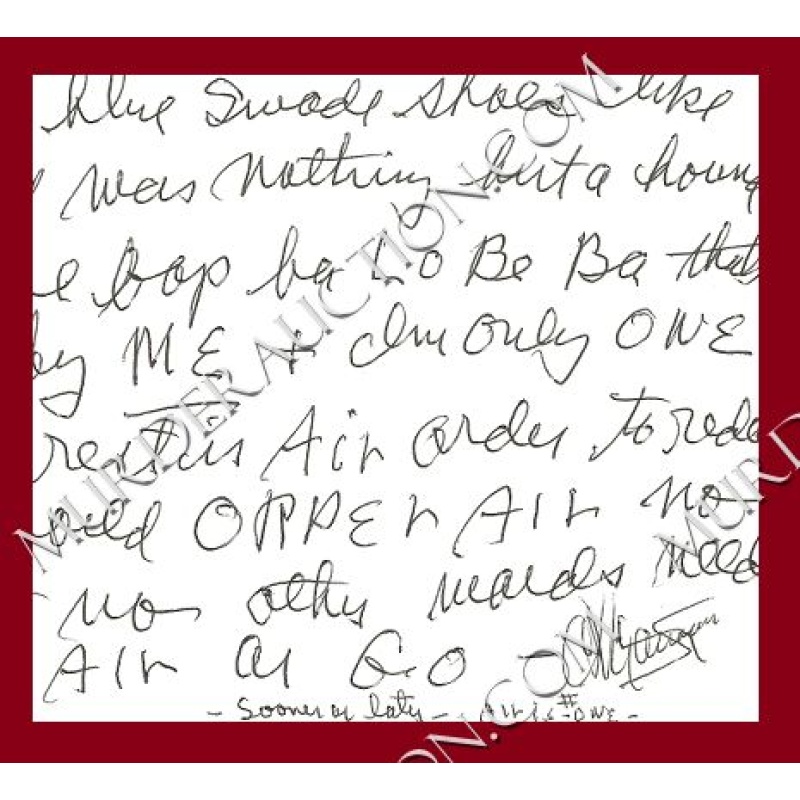 blue Swade shoes like
was nothing but a houn
e bop ba Lo Be Ba that
by ME + im only ONE
rest is Air order to rede
OPPER AIR no
no other words need
AIR or GO -
- Sooner or later - Air is # ONE -
MURDERAUCTION.COM